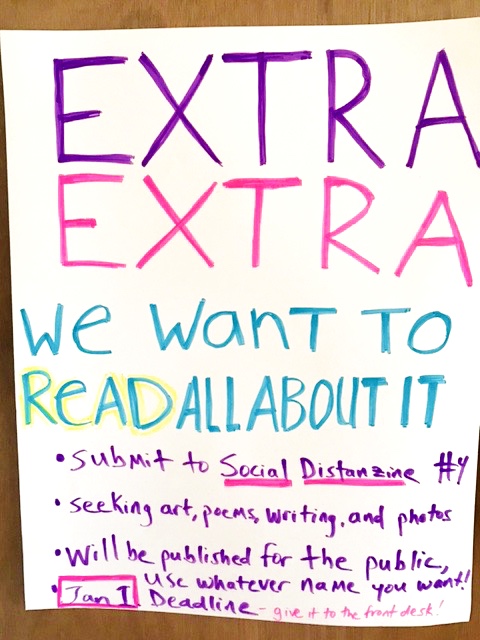 EXTRA
EXTRA
We Want To
ReAD ALL ABOUT IT
• Submit to Social Distanzine #4
• seeking art, poems, writing, and photos
• Will be published for the public,
use whatever name you want!
• Jan 1 Deadline - give it to the front desk!